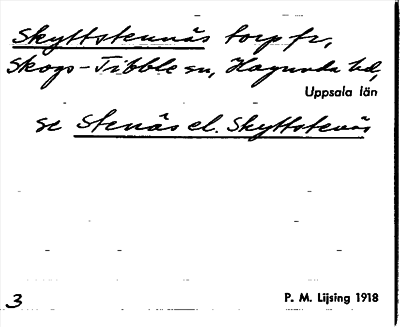 Skyttstennäs torp fr,
Skogs-Tibble sn, Hagunda hd,
Uppsala län
se Stenäs el. Skyttstenäs
3
P. M. Lijsing 1918